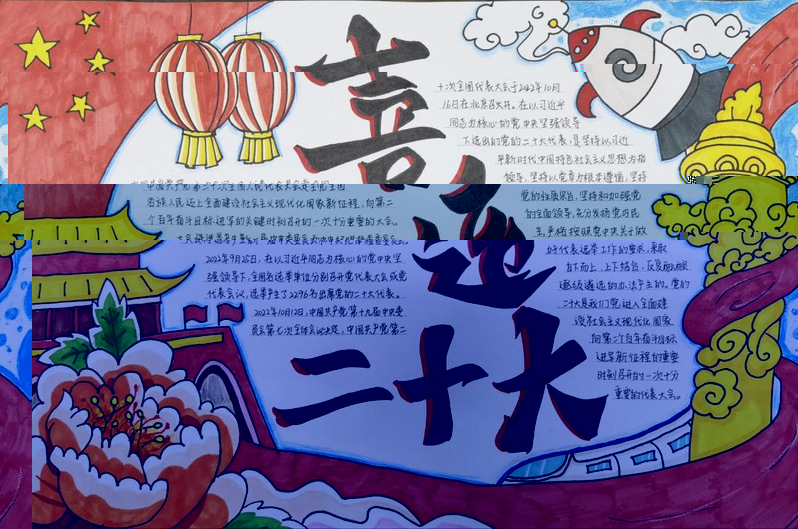 喜迎二十大
中国共产党第二十次全国人民代表大会是全党全国
各族人民迈上全面建设社会主义现代化国家新征程、向第二
个百年奋斗目标进军的关键时刻召开的一次十分重要的大会。
2022年9月25日，在以习近平同志为核心的党中央坚
强领导下，全国各选举单位分别召开党代表大会或党
代表会议，选举产生了2296名出席党的二十大代表。
2022年10月12日，中国共产党第十九届中央委
员会第七次全体会议决定，中国共产党第二
十次全国代表大会于2022年10月
16日在北京召开。在以习近平
同志为核心的党中央坚强领导
下选出的党的二十大代表，是坚持以习近
平新时代中国特色社会主义思想为指
领导，坚持以党章为根本遵循，坚持
党的性质宗旨，坚持和加强党
的全面领导，充分发扬党内民
主，严格按照党中央关于做
好代表选举工作的要求，采取
自下而上、上下结合、反复酝酿、
逐级遴选的办法产生的。党的
二十大是我们党进入全面建
设社会主义现代化国家、
向第二个百年奋斗目标
进军新征程的重要
时刻召开的一次十分
重要的代表大会。